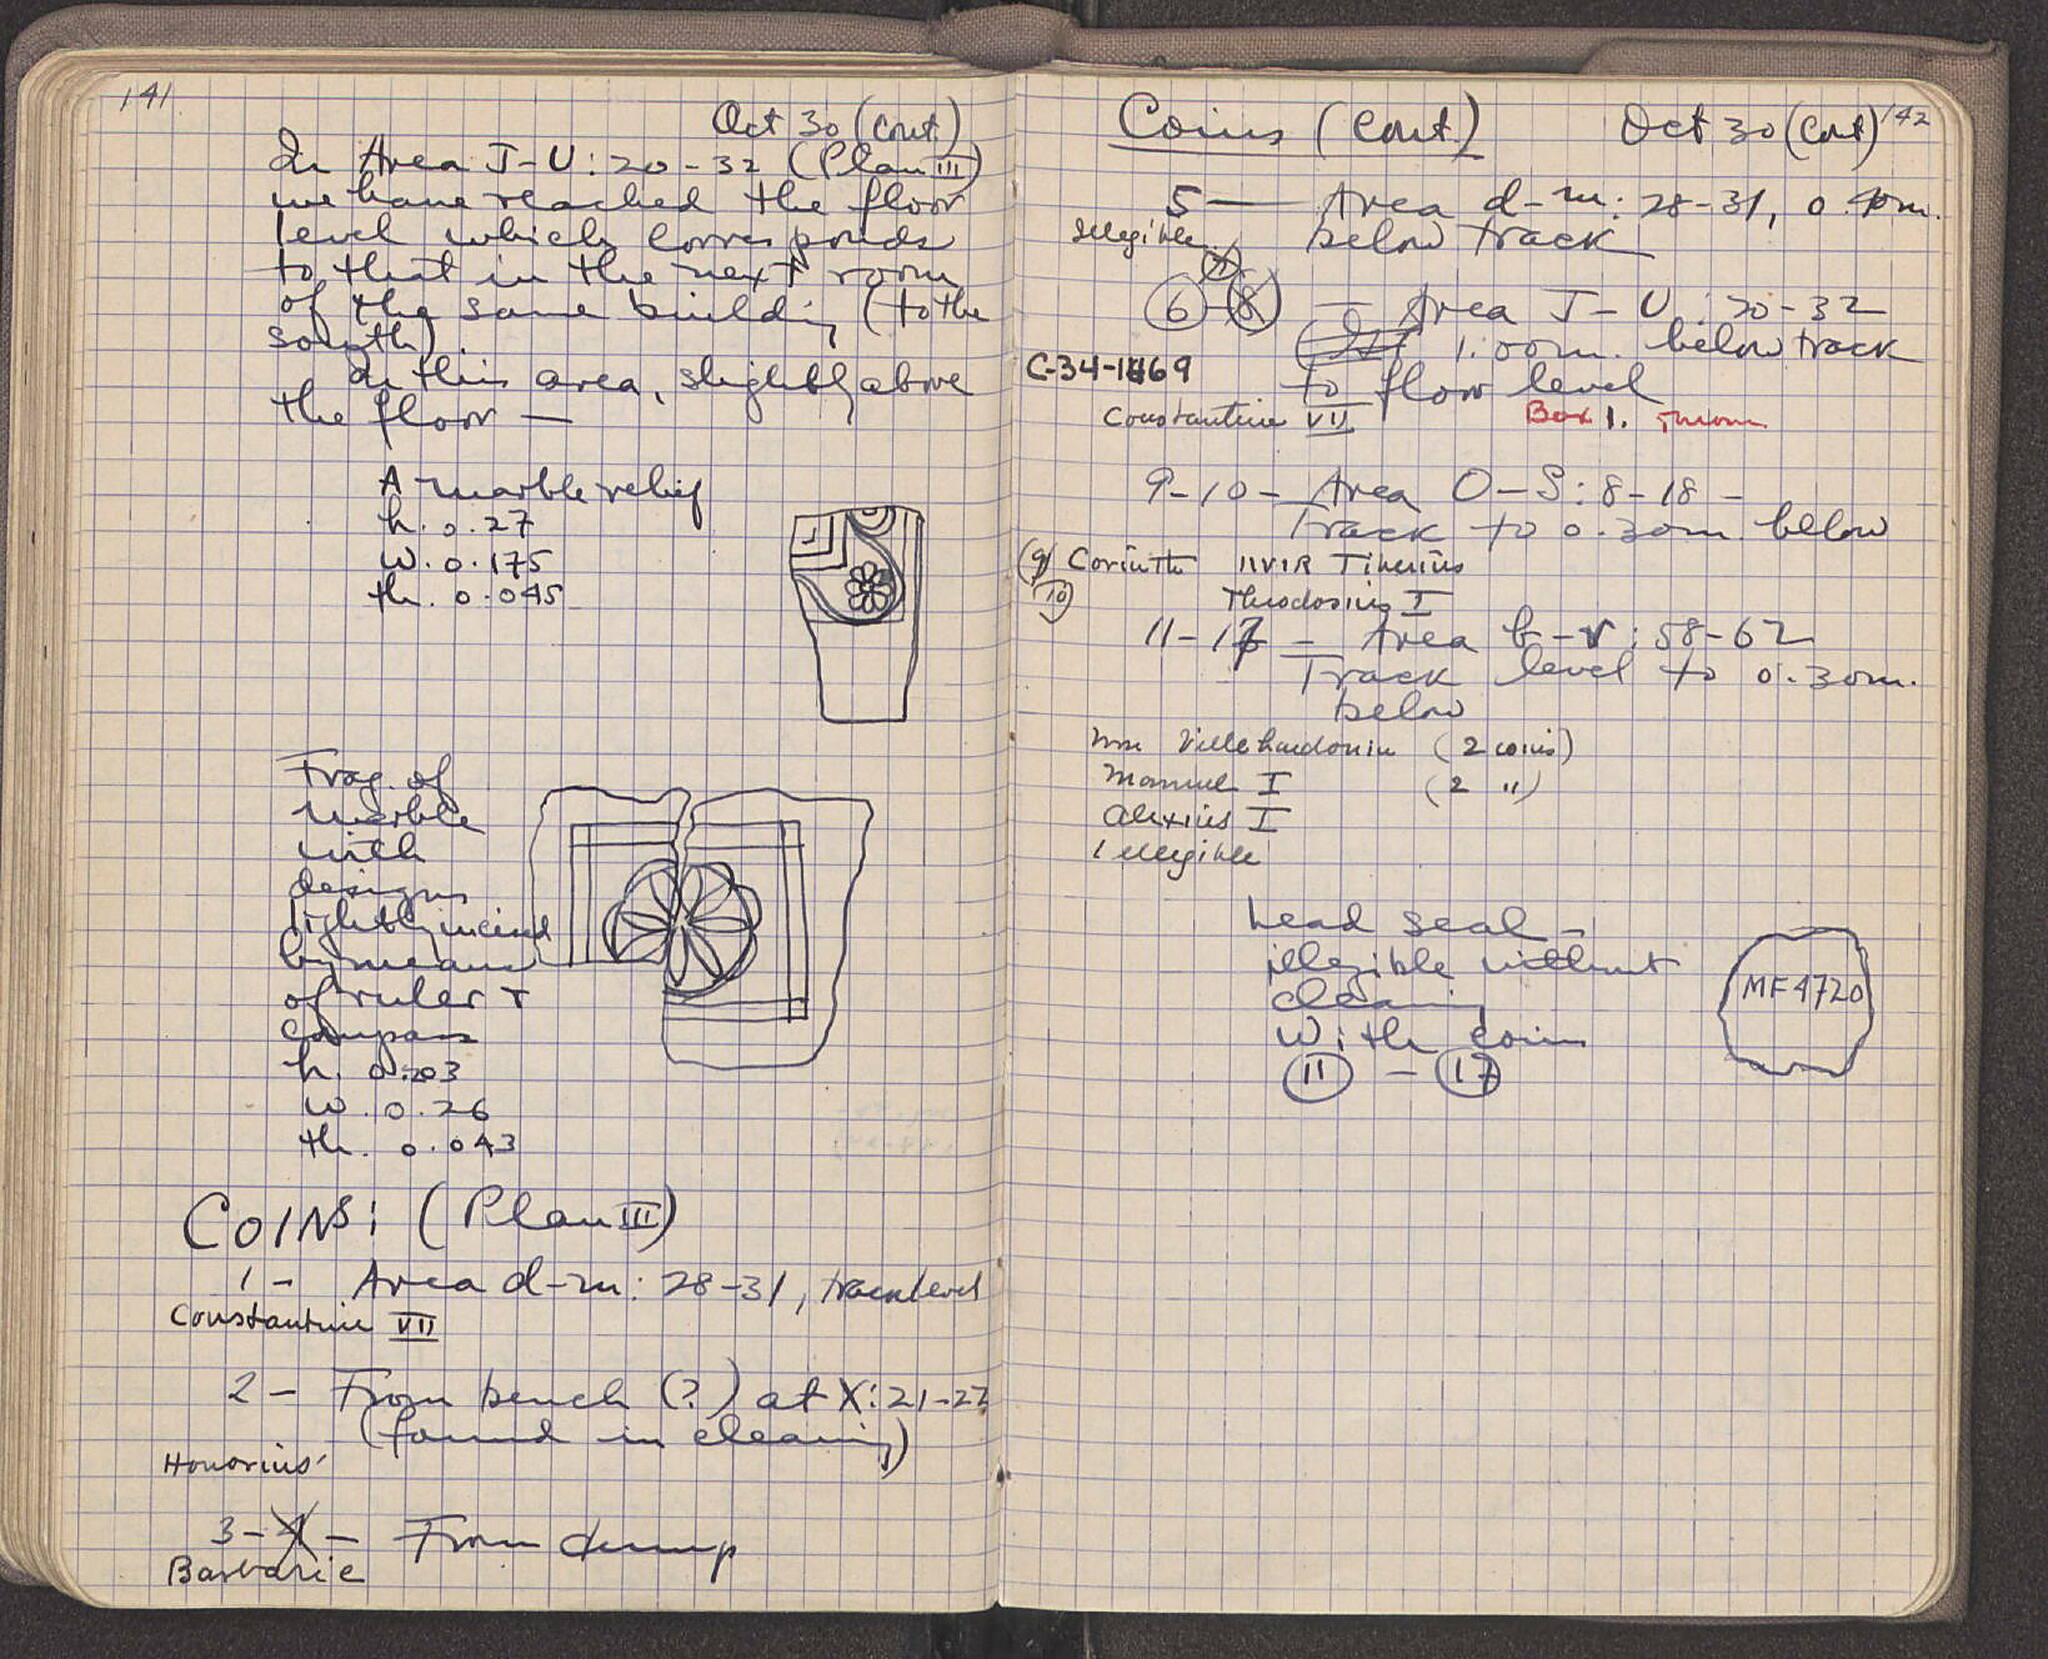 141
Oct 30 (cont)
In Area J-U: 20-32 (Plan III)
we have reached the floor
level which corresponds
to that in the next room
of the same building (to the
south).
In this area, slightly above
the floor —
A marble relief
h. 0.27
w. 0.175
th. 0.045
Frag. of
marble
with
designs
lightly incised
by means
of ruler +
compass
h. 0.203
w. 0.26
th. 0.043
COINS: (Plan III)
1 - Area d-m: 28-31, track level
Constantine VII
2 - From bench (?) at X: 21-22
(found in cleaning)
Honorius
3-4 - From dump
Barbaric
142
Coins (cont.) Oct 30 (cont)
5 — Area d-m: 28-31, 0.40m.
Illegible below track
7
6-8 — Area J-U: 20-32
1.00m. below track
C-34-1469 to floor level
Constantine VII Box 1.
9-10 - Area O-S: 8-18 -
Track to 0.30m. below
(9) Corinth IIVIR Tiberius
(10) Theodosius I
11-17 - Area b-r: 58-62
Track level to 0.30m.
below
Villehardouin (2 coins)
Manuel I (2 ")
Alexius I
1 illegible
Lead seal -
illegible without
cleaning
With coins
11 - 17
MF 4720